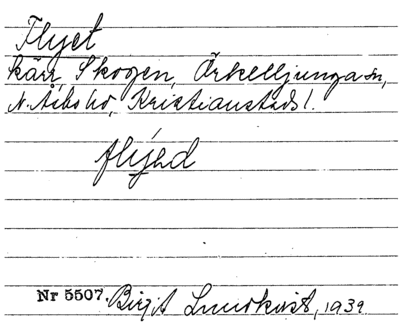 Flyet
kärr, Skogen, Örkelljunga sn,
N. Åsbo hd, Kristianstads l.
flýəd
Nr 5507. Birgit Lundkvist, 1939